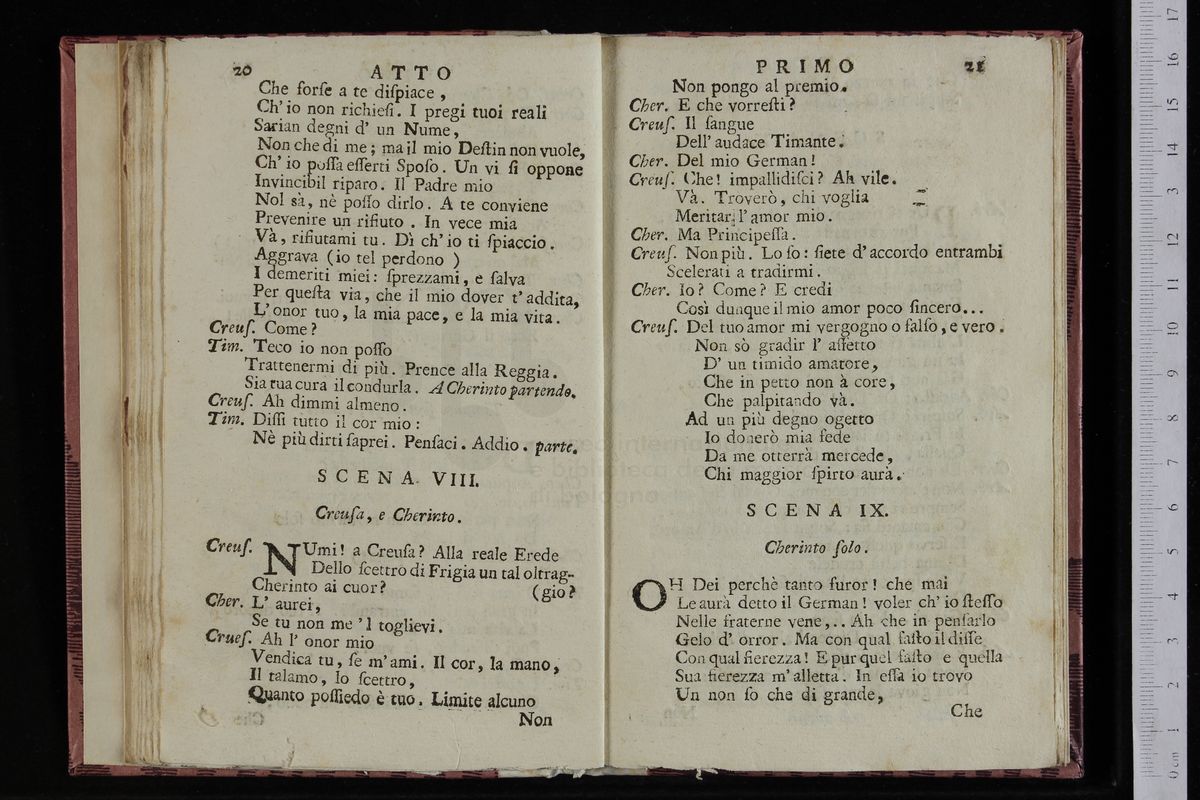 20 ATTO
Che forſe a te diſpiace ,
Ch' io non richieſi. I pregi tuoi reali
Sarian degni d' un Nume,
Non che di me ; ma il mio Deſtin non vuole,
Ch' io poſſa eſſerti Spoſo. Un vi ſi oppone
Invincibil riparo. Il Padre mio
Nol sà, nè poſſo dirlo. A te conviene
Prevenire un rifiuto . In vece mia
Và, rifiutami tu. Dì ch' io ti ſpiaccio.
Aggrava (io tel perdono )
I demeriti miei: ſprezzami, e ſalva
Per queſta via, che il mio dover t' addita,
L' onor tuo, la mia pace, e la mia vita.
Creuſ. Come?
Tim. Teco io non poſſo
Trattenermi di più. Prence alla Reggia.
Sia tua cura il condurla. A Cherinto partendo.
Creuſ. Ah dimmi almeno.
Tim. Diſſi tutto il cor mio :
Nè più dirti ſaprei. Penſaci. Addio. parte.
SCENA VIII.
Creuſa, e Cherinto.
Creuſ. NUmi! a Creuſa? Alla reale Erede
Dello ſcettro di Frigia un tal oltrag-
Cherinto ai cuor? (gio?
Cher. L' aurei,
Se tu non me 'l toglievi.
Crueſ. Ah l' onor mio
Vendica tu, ſe m' ami. Il cor, la mano,
Il talamo, lo ſcettro,
Quanto poſſiedo è tuo. Limite alcuno
Non
PRIMO 21
Non pongo al premio.
Cher. E che vorreſti?
Creuſ. Il ſangue
Dell' audace Timante.
Cher. Del mio German!
Creuſ. Che! impallidiſci? Ah vile.
Và. Troverò, chi voglia
Meritar l' amor mio.
Cher. Ma Principeſſa.
Creuſ. Non più. Lo ſo: ſiete d' accordo entrambi
Scelerati a tradirmi.
Cher. Io? Come? E credi
Così dunque il mio amor poco ſincero...
Creuſ. Del tuo amor mi vergogno o falſo, e vero.
Non sò gradir l' affetto
D' un timido amatore,
Che in petto non à core,
Che palpitando và.
Ad un più degno ogetto
Io donerò mia fede
Da me otterrà mercede,
Chi maggior ſpirto aurà.
SCENA IX.
Cherinto ſolo.
OH Dei perchè tanto furor! che mai
Le aurà detto il German! voler ch' io ſteſſo
Nelle fraterne vene,.. Ah che in penſarlo
Gelo d' orror. Ma con qual faſto il diſſe
Con qual fierezza! E pur quel faſto e quella
Sua fierezza m' alletta. In eſſa io trovo
Un non ſo che di grande,
Che